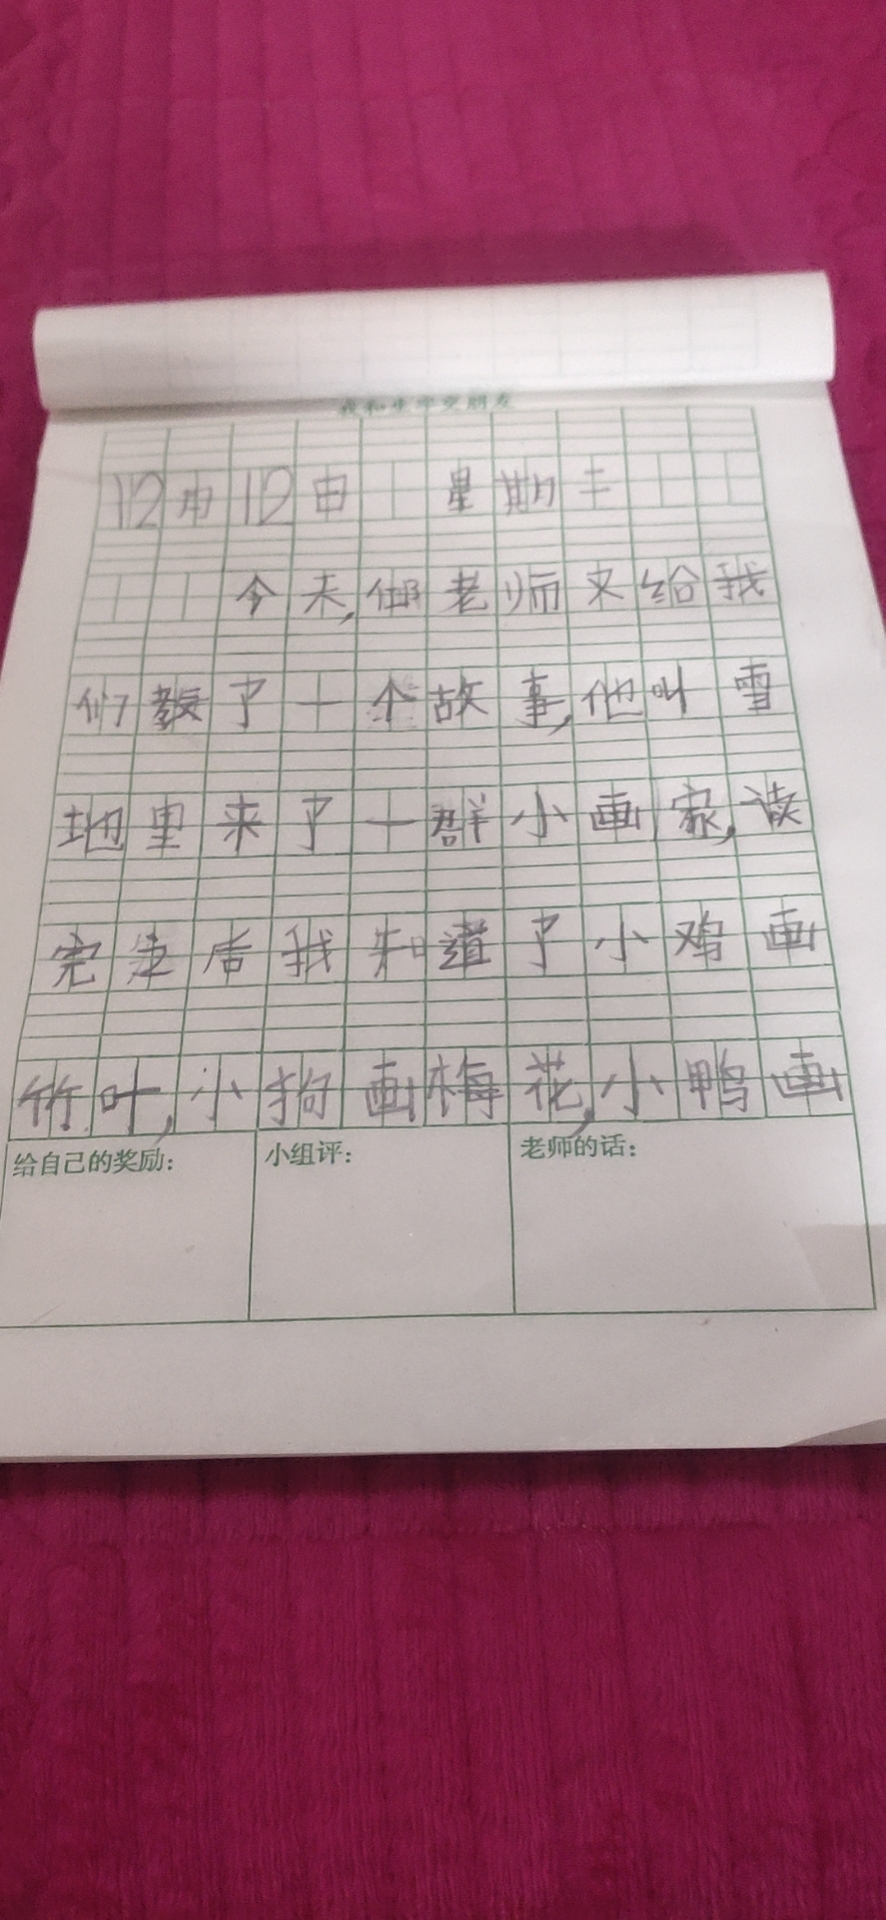 我和生字交朋友
12月12日 星期三
今天,邯老师又给我
们教了一个故事,他叫雪
地里来了一群小画家,读
完之后我知道了小鸡画
竹叶,小狗画梅花,小鸭画
给自己的奖励:
小组评:
老师的话: